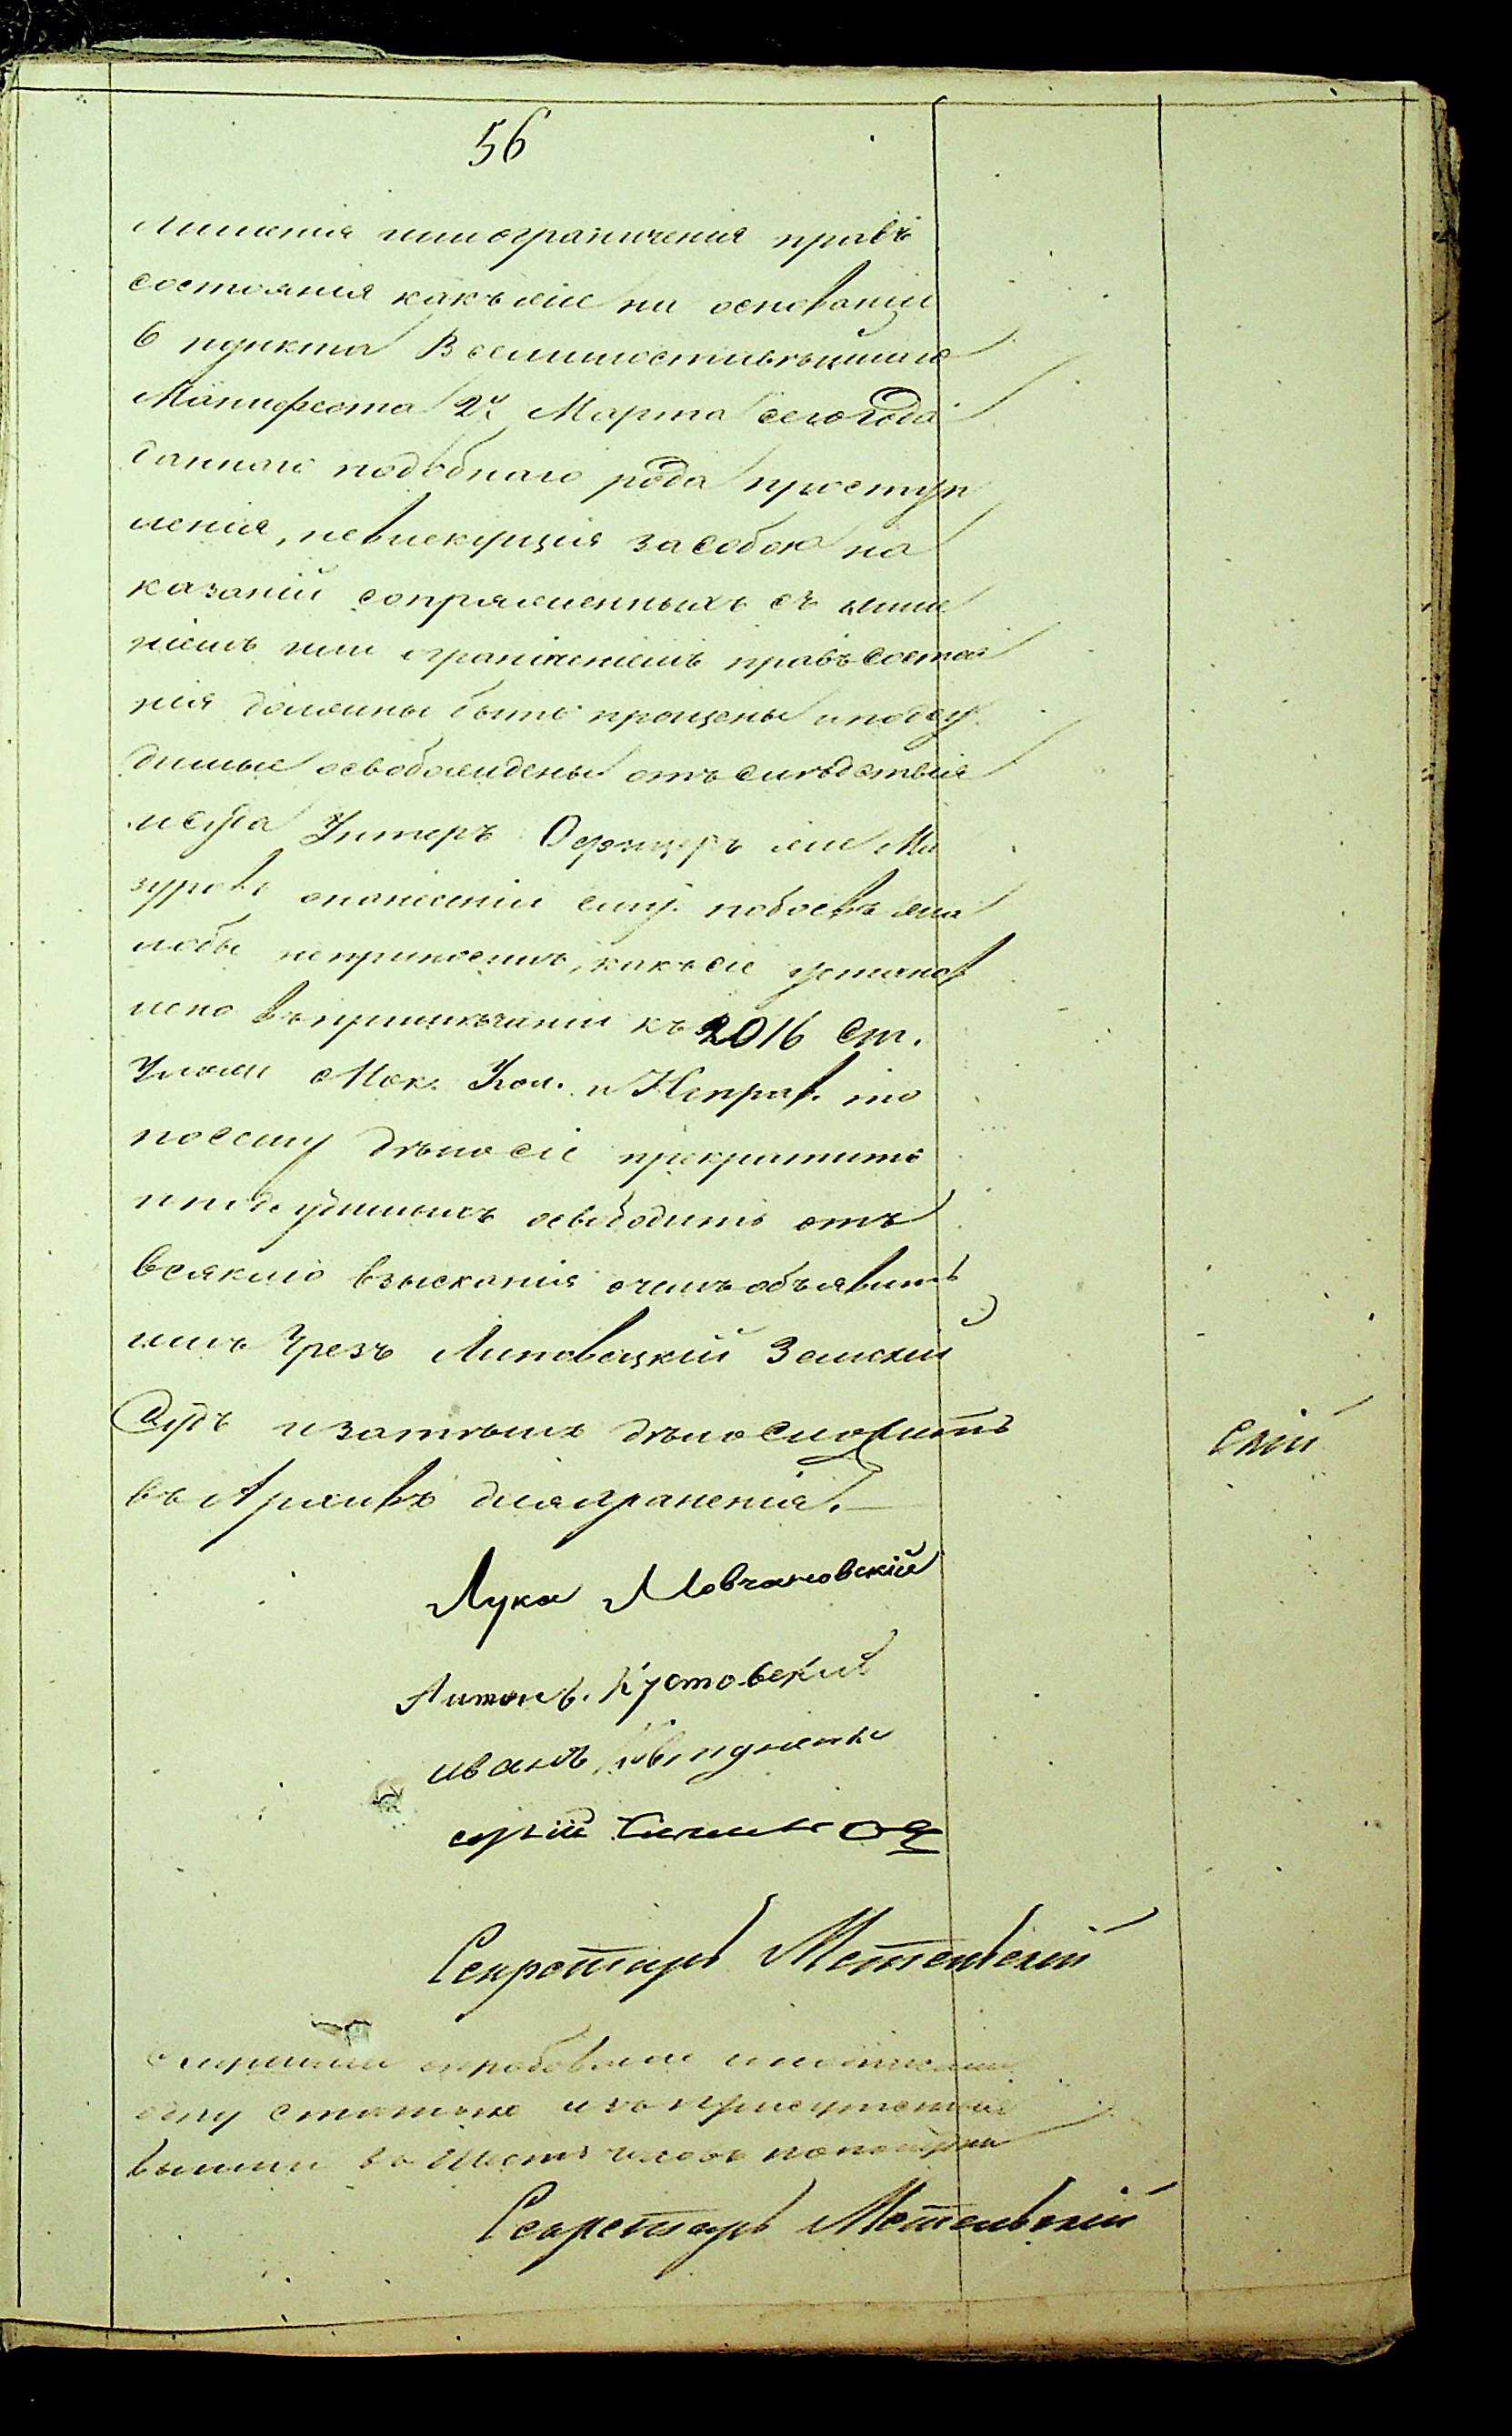 56
лишенія или ограниченія правъ
состоянія какъ же на основаніи
6 пункта Всемилостивѣйшаго
Манифеста 27 Марта сего года
даннаго подобнаго рода преступ
ленія, невлекущія за собою на
казаній сопряженныхъ съ лише
ніемъ или ограниченіемъ правъ состоя
нія должны быть прощены и подсу
димые освобождены отъ слѣдствія
и суда Унтеръ Офицеръ же Ма
зуровъ онанесеніи ему побоевъ жа
лобы неприноситъ, какъ сіе установ
лено въ примѣчаніи къ 2016 ст.
Улож. о Нак. Уго. и Исправ. то
посему дѣло сіе прекратить
и подсудимыхъ освободить отъ
всякаго взысканія о чемъ объявить
имъ Чрезъ Липовецкій Земскій
Судъ и затѣмъ дѣло сложить
въ Архивъ для храненія.
Лука Мовчановскій
Антонъ Кустовскій
иванъ
Секретарь Метельскій
слушали
одну статью изъ присутствія
вышли въ Шесть часовъ пополудни
Секретарь Метельскій